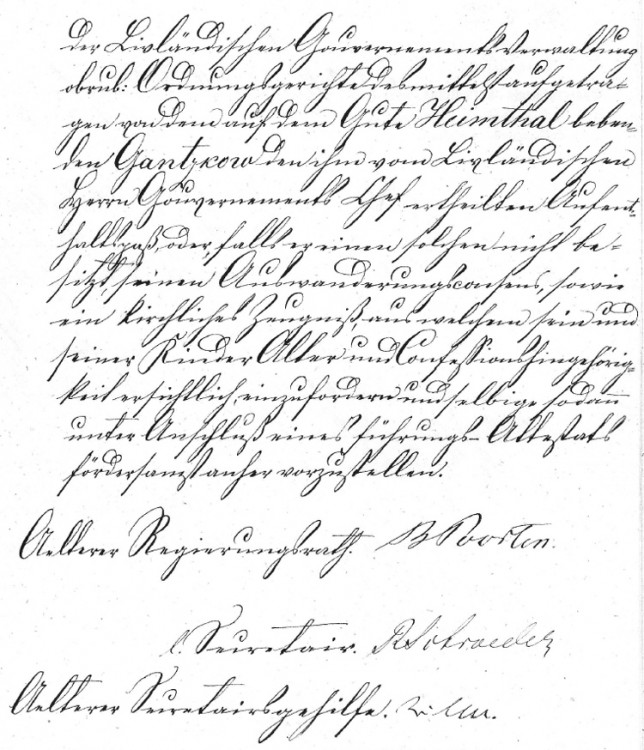 der Livländischen Gouvernements Verwaltung
Ordnungsgerichte desmittelst aufgetra-
gen von dem auf dem Gute Heimthal leben-
den Gantzkow den ihm vom Livländischen
Herrn Gouvernements Chef ertheilten Aufent-
haltspaß, oder, falls er einen solchen nicht be-
sitzt, seinen Auswanderungsconsens, sowie
ein kirchliches Zeugniß, aus welchem sein und
seiner Kinder Alter und Confessionshingehörig-
keit ersichtlich, einzufordern und selbige sodann
unter Anschluß eines Führungs-Attestats
fördersamst anher vorzustellen.
Aelterer Regierungsrath.
Secretair. R Schroeder
Aelterer Secretairsgehilfe.